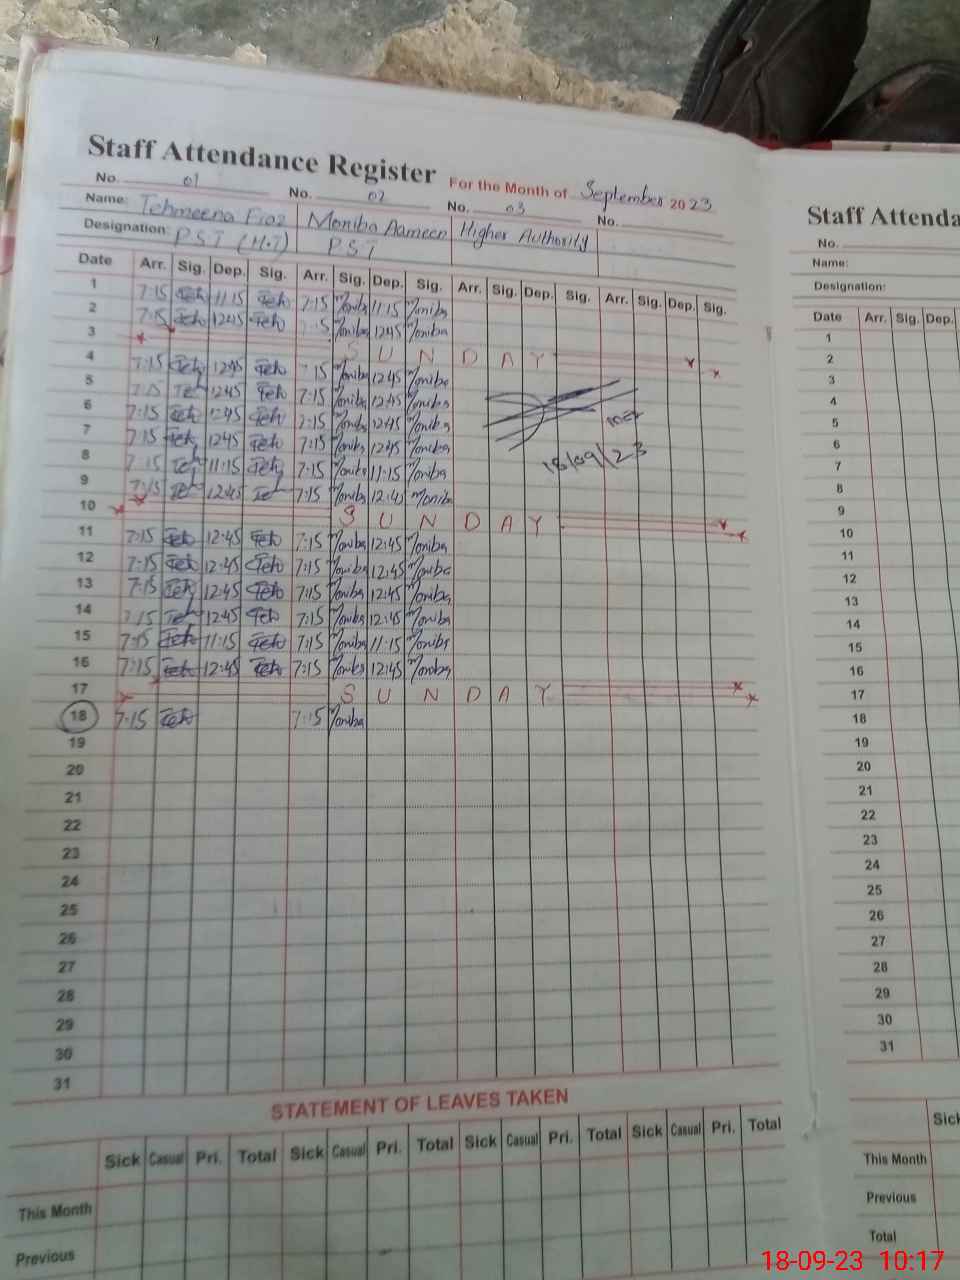 Staff Attendance Register For the Month of September 2023
No. 01 No. 02 No. 03 No.
Name: Tehmeena Fiaz Moniba Aameen Higher Authority
Designation: PST (H.T) PST
Date Arr. Sig. Dep. Sig. Arr. Sig. Dep. Sig. Arr. Sig. Dep. Sig. Arr. Sig. Dep. Sig.
1 7:15 Teh 11:15 Teh 7:15 Moniba 11:15 Moniba
2 7:15 Teh 12:45 Teh 7:15 Moniba 12:45 Moniba
3 S U N D A Y
4 7:15 Teh 12:45 Teh 7:15 Moniba 12:45 Moniba
5 7:15 Teh 12:45 Teh 7:15 Moniba 12:45 Moniba
6 7:15 Teh 12:45 Teh 7:15 Moniba 12:45 Moniba
7 7:15 Teh 12:45 Teh 7:15 Moniba 12:45 Moniba
18/09/23
8 7:15 Teh 11:15 Teh 7:15 Moniba 11:15 Moniba
9 7:15 Teh 12:45 Teh 7:15 Moniba 12:45 Moniba
10 S U N D A Y
11 7:15 Teh 12:45 Teh 7:15 Moniba 12:45 Moniba
12 7:15 Teh 12:45 Teh 7:15 Moniba 12:45 Moniba
13 7:15 Teh 12:45 Teh 7:15 Moniba 12:45 Moniba
14 7:15 Teh 12:45 Teh 7:15 Moniba 12:45 Moniba
15 7:15 Teh 11:15 Teh 7:15 Moniba 11:15 Moniba
16 7:15 Teh 12:45 Teh 7:15 Moniba 12:45 Moniba
17 S U N D A Y
18 7:15 Teh 7:15 Moniba
19
20
21
22
23
24
25
26
27
28
29
30
31
STATEMENT OF LEAVES TAKEN
Sick Casual Pri. Total Sick Casual Pri. Total Sick Casual Pri. Total Sick Casual Pri. Total
This Month
Previous
Staff Attenda
No.
Name:
Designation:
Date Arr. Sig. Dep.
1
2
3
4
5
6
7
8
9
10
11
12
13
14
15
16
17
18
19
20
21
22
23
24
25
26
27
28
29
30
31
Sick
This Month
Previous
Total
18-09-23 10:17